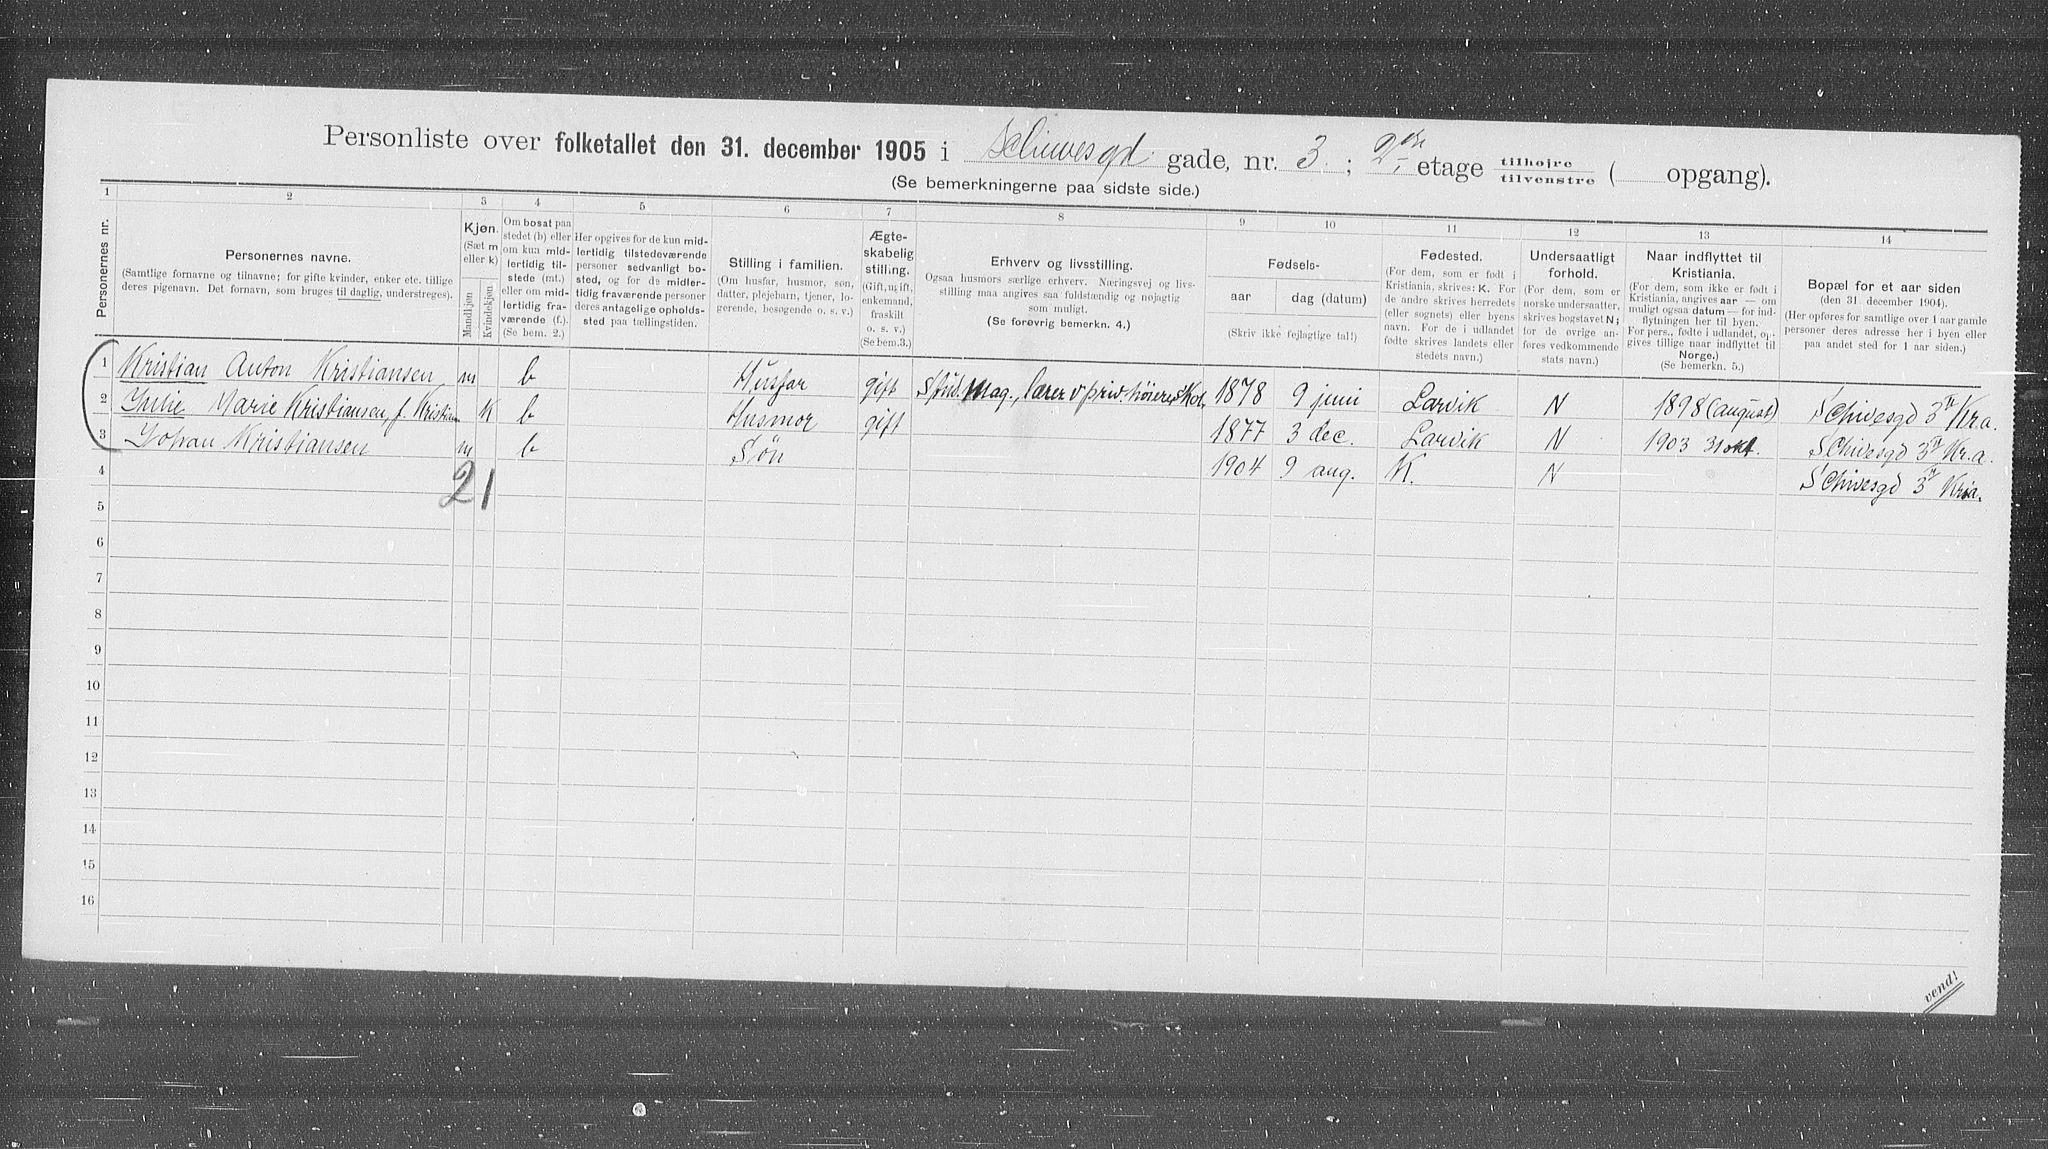 Personliste over folketallet den 31. december 1905 i Schivesgd. gade, nr. 3. ; 2den etage tilhøjre tilvenstre ( opgang).
(Se bemerkningerne paa sidste side.)
1 2 3 4 5 6 7 8 9 10 11 12 13 14
Personernes nr.
Personernes navne.
(Samtlige fornavne og tilnavne; for gifte kvinder, enker etc. tillige
deres pigenavn. Det fornavn, som bruges til daglig, understreges).
Kjøn.
(Sæt m
eller k)
Mandkjøn
Kvindekjøn.
Om bosat paa
stedet (b) eller
om kun mid-
lertidig til-
stede (mt.)
eller om mid-
lertidig fra-
værende (f.).
(Se bem. 2.)
Her opgives for de kun mid-
lertidig tilstedeværende
personer sedvanligt bo-
sted, og for de midler-
tidig fraværende personer
deres antagelige opholds-
sted paa tællingstiden.
Stilling i familien.
(Om husfar, husmor, søn,
datter, plejebarn, tjener, lo-
gerende, besøgende o. s. v.)
Ægte-
skabelig
stilling.
(Gift, ugift,
enkemand,
fraskilt
o. s. v.)
(Se bem. 3.)
Erhverv og livsstilling.
Ogsaa husmors særlige erhverv. Næringsvej og livs-
stilling maa angives saa fuldstændig og nøjagtig
som muligt.
(Se forøvrig bemerkn. 4.)
Fødsels-
aar
dag (datum)
(Skriv ikke fejlagtige tal!)
Fødested.
(For dem, som er født i
Kristiania, skrives: K. For
de andre skrives herredets
(eller sognets) eller byens
navn. For de i udlandet
fødte skrives landets eller
stedets navn.)
Undersaatligt
forhold.
(For dem, som er
norske undersaatter,
skrives bogstavet N;
for de øvrige an-
føres vedkommende
stats navn.)
Naar indflyttet til
Kristiania.
(For dem, som ikke er født i
Kristiania, angives aar — om
muligt ogsaa datum — for ind-
flytningen her til byen.
For pers., fødte i udlandet, op-
gives tillige naar indflyttet til
Norge.)
(Se bemerkn. 5.)
Bopæl for et aar siden
(den 31. december 1904).
(Her opføres for samtlige over 1 aar gamle
personer deres adresse her i byen eller
paa andet sted for 1 aar siden.)
1 Kristian Anton Kristiansen m b Husfar gift Stud. mag., lærer v priv. høiere skol. 1878 9 juni Larvik N 1898 (august) Schivesgd 3 II Kr.a.
2 Julie Marie Kristiansen, f. Kristian K b Husmor gift 1877 3 dec. Larvik N 1903 31 okt. Schivesgd 3 II Kr.a.
3 Johan Kristiansen m b Søn 1904 9 aug. K. N Schivesgd 3 II Kria.
4 21
5
6
7
8
9
10
11
12
13
14
15
16
vend!